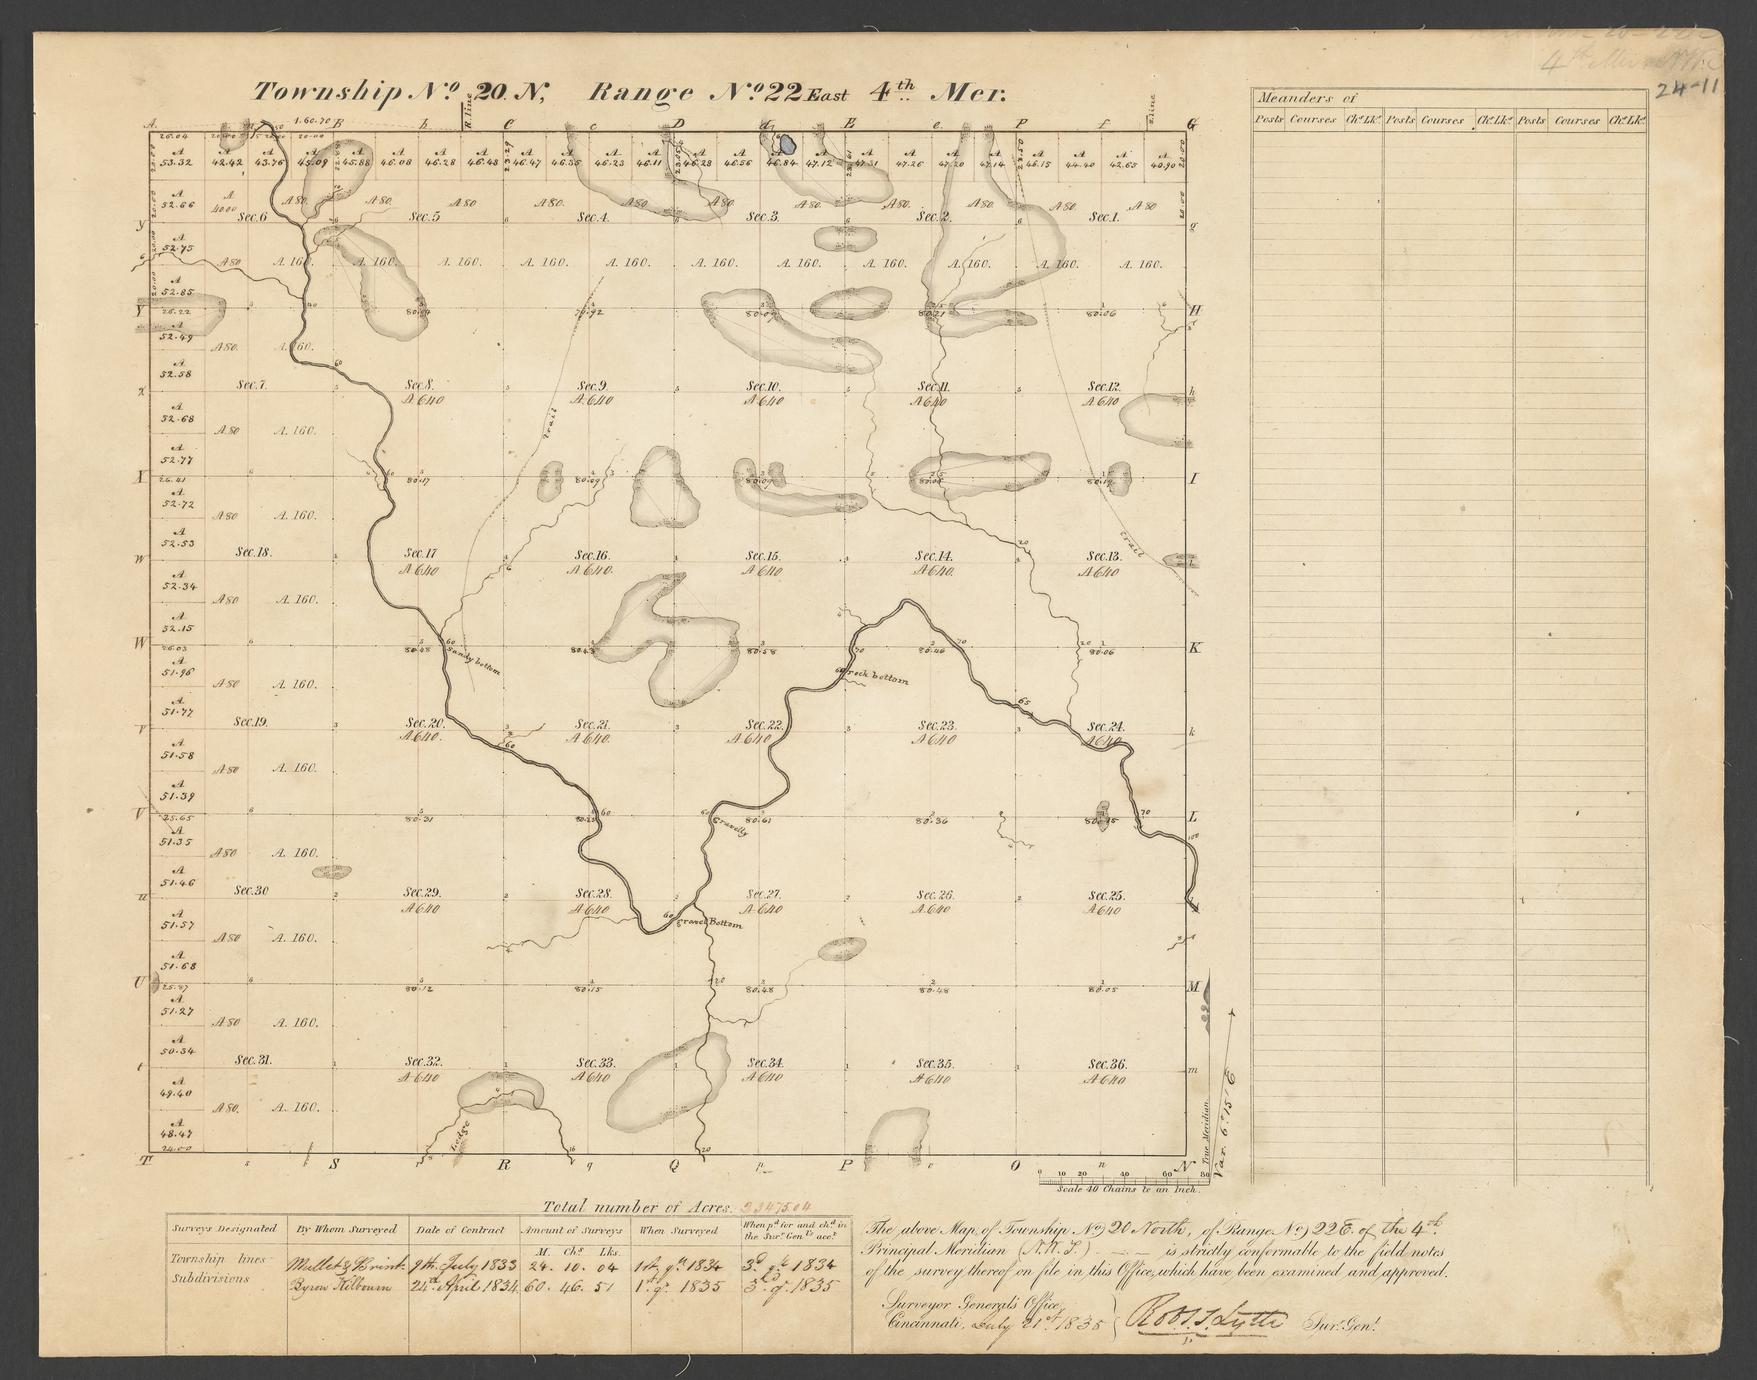 24-11
Township No. 20 N, Range No. 22 East 4th Mer.
Meanders of
Posts Courses Chs. Lks. Posts Courses Chs. Lks. Posts Courses Chs. Lks.
R. line
1.60.70
A B b C c D d E e F f G
26.04
A 53.32 A 42.42 A 43.76 A 45.09 A 45.88 A 46.08 A 46.28 A 46.48 A 46.47 A 46.35 A 46.23 A 46.11 A 46.28 A 46.56 A 46.84 A 47.12 A 47.31 A 47.26 A 47.20 A 47.14 A 46.15 A 44.40 A 42.65 A 40.90
A 52.66 A 40.00 A 80. A 80. A 80 A 80. A 80. A 80. A 80. A 80. A 80. A 80. A 80
Sec. 6 Sec. 5 Sec. 4. Sec. 3. Sec. 2. Sec. 1.
y g
A 52.75
A 80 A. 160. A. 160. A. 160. A. 160. A. 160. A. 160. A. 160. A. 160. A. 160. A. 160. A. 160.
A 52.85
Y 26.22 79.92 80.21 80.06 H
A 52.49
A 80. A. 160.
A 52.58
Sec. 7. Sec. 8. Sec. 9 Sec. 10. Sec. 11. Sec. 12.
x A 640 A 640 A 640 A 640 A 640 h
A 52.68
trail
A 80 A. 160.
A 52.77
I 26.41 80.17 80.09 I
A 52.72
A 80 A. 160.
A 52.53
trail
Sec. 18. Sec. 17 Sec. 16. Sec. 15. Sec. 14. Sec. 13.
w A 640 A 640. A 640 A 640. A 640
A 52.34
A 80 A. 160.
A 52.15
W 26.03 80.48 80.58 80.46 80.06 K
Sandy bottom
A 51.96
rock bottom
A 80 A. 160.
A 51.77
Sec. 19. Sec. 20. Sec. 21. Sec. 22. Sec. 23. Sec. 24.
A 640. A 640. A 640 A 640 A 640 k
A 51.58
A 80 A. 160.
A 51.39
V 25.65 80.31 80.61 80.36 L
gravelly
A 51.35
A 80 A. 160.
A 51.46
Sec. 30 Sec. 29. Sec. 28. Sec. 27. Sec. 26. Sec. 25.
u A 640 A 640 A 640 A 640 A 640
gravel Bottom
A 51.57
A 80 A. 160.
A 51.68
U 25.87 80.12 80.15 80.48 80.48 80.05 M
A 51.27
A 80 A. 160.
A 50.34
Sec. 31. Sec. 32. Sec. 33. Sec. 34. Sec. 35. Sec. 36.
t A 640 A 640 A 640 A 640 A 640 m
A 49.40
A 80. A. 160.
A 48.47
24.00
Ledge
True Meridian
Var. 6° 15' E
T s S r R q Q p P o O n N
0 10 20 40 60 80
Scale 40 Chains to an Inch.
Total number of Acres.
Surveys Designated By Whom Surveyed Date of Contract Amount of Surveys When Surveyed When pd. for and chd. in the Surr. Genls. acct.
M. Chs. Lks.
Township lines Mullet & Brink 9th. July 1833 24. 10. 04 1834 3d. qr. 1834
Subdivisions Byron Kilbourn 21st. April 1834 60. 46. 51 1st. qr. 1835 3d. qr. 1835
The above Map of Township No. 20 North, of Range No. 22 E. of the 4th.
Principal Meridian (N.W.T.) is strictly conformable to the field notes
of the survey thereof on file in this Office, which have been examined and approved.
Surveyor General's Office,
Cincinnati, July 21st. 1835
Robt. T. Lytle Sur. Genl.